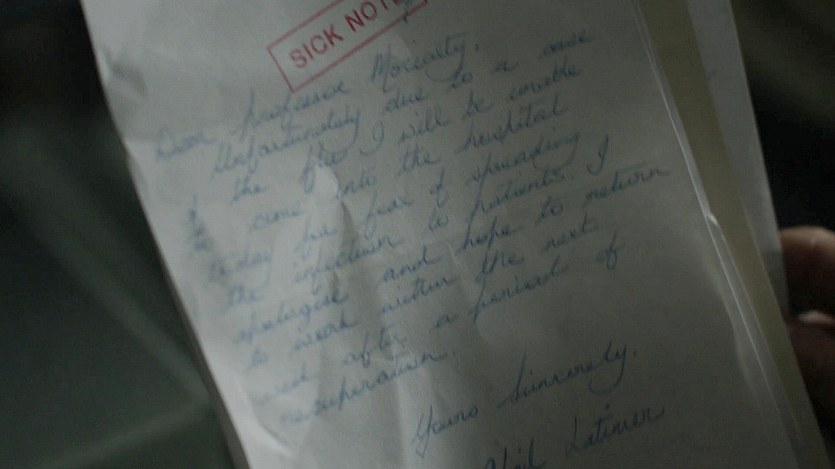 SICK NOTE
Dear Professor Moriarty,
Unfortunately due to a case
of the flu I will be unable
to come into the hospital
today for fear of spreading
the infection to patients. I
apologise and hope to return
to work within the next
week after a period of
recuperation.
Yours Sincerely,
Latimer